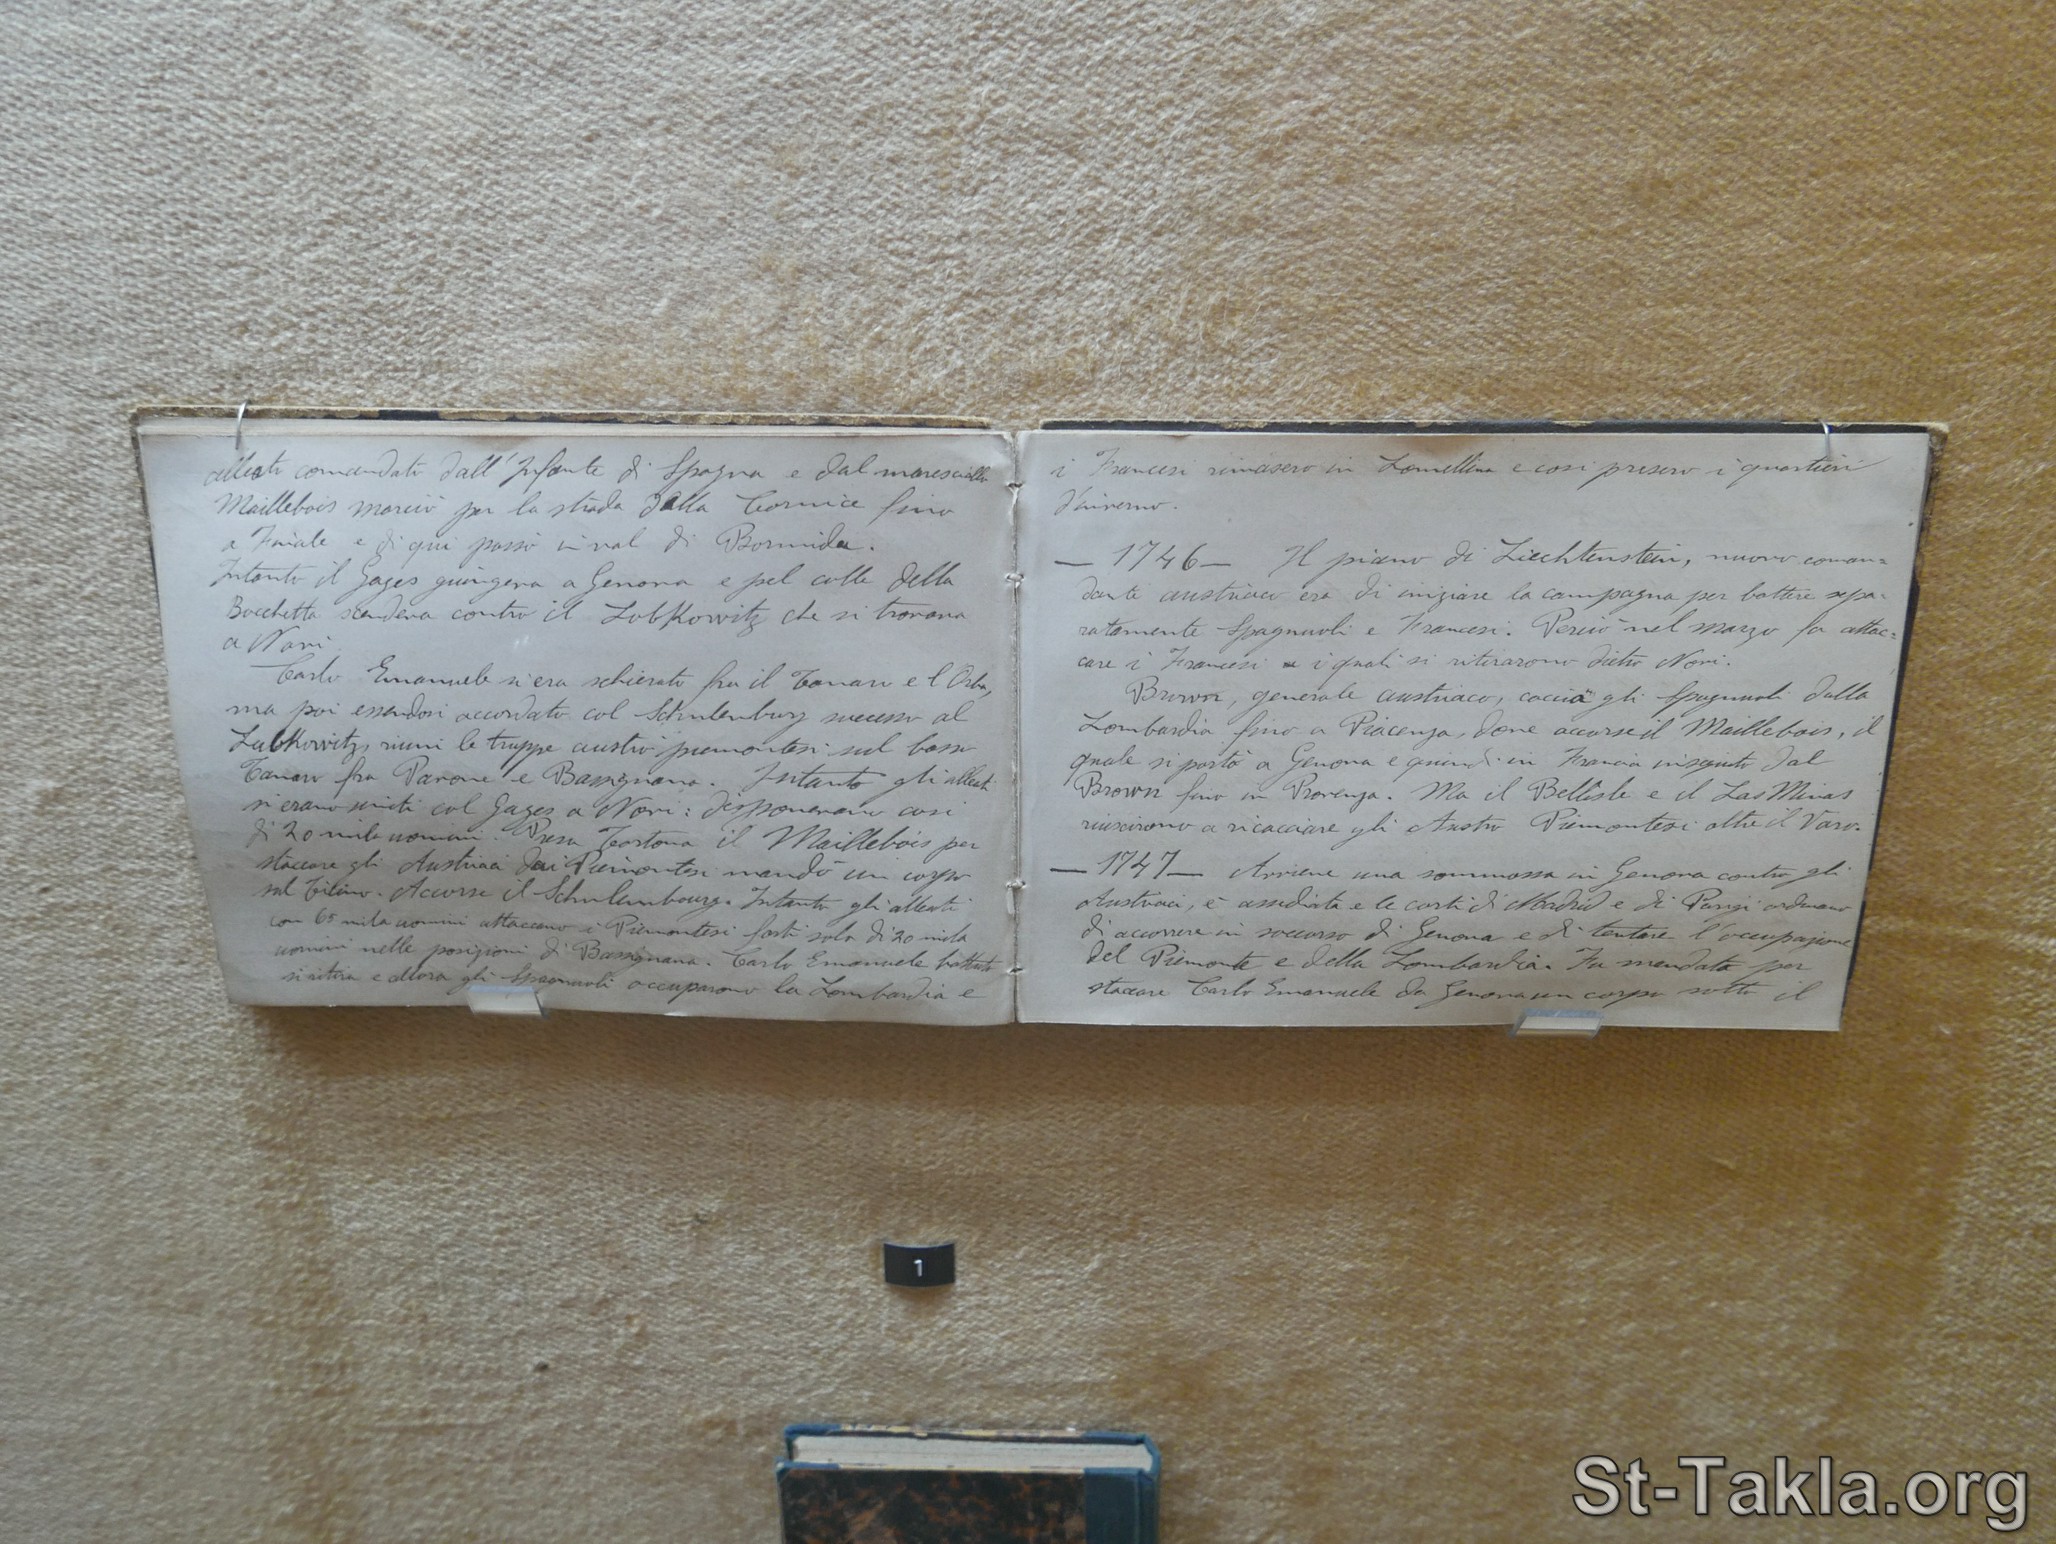 alleato comandato dall'Infante di Spagna e dal maresciallo
Maillebois marciò per la strada della Cornice fino
a Finale e di qui passò in val di Bormida.
Intanto il Gages giungeva a Genova e pel colle della
Bocchetta scendeva contro il Lobkowitz che si trovava
a Novi.
Carlo Emanuele si era schierato fra il Tanaro e l'Orba,
ma poi essendosi accordato col Schulenburg successo al
Lobkowitz, riunì le truppe austro piemontesi sul basso
Tanaro fra Pavone e Bassignana. Intanto gli alleati
si erano uniti col Gages a Novi: disponevano così
di 70 mila uomini. Presa Tortona il Maillebois per
staccare gli Austriaci dai Piemontesi mandò un corpo
sul Ticino. Accorse il Schulembourg. Intanto gli alleati
con 65 mila uomini attaccano i Piemontesi forti solo di 20 mila
uomini nelle posizioni di Bassignana. Carlo Emanuele battuto
si ritira e allora gli Spagnuoli occuparono la Lombardia e
i Francesi rimasero in Lomellina e così presero i quartieri
d'inverno.
— 1746 — Il piano di Liechtenstein, nuovo coman=
dante austriaco era di iniziare la campagna per battere sepa-
ratamente Spagnuoli e Francesi. Perciò nel marzo fa attac=
care i Francesi i quali si ritirarono dietro Novi.
Brown, generale austriaco, caccia gli Spagnuoli dalla
Lombardia fino a Piacenza, dove accorse il Maillebois, il
quale si portò a Genova e quindi in Francia inseguito dal
Brown fino in Provenza. Ma il Bellisle e il Las Minas
riuscirono a ricacciare gli Austro Piemontesi oltre il Varo.
— 1747 — Avviene una sommossa in Genova contro gli
Austriaci, è assediata e le corti di Madrid e di Parigi ordinano
di accorrere in soccorso di Genova e di tentare l'occupazione
del Piemonte e della Lombardia. Fu mandato per
staccare Carlo Emanuele da Genova un corpo sotto il
1
St-Takla.org